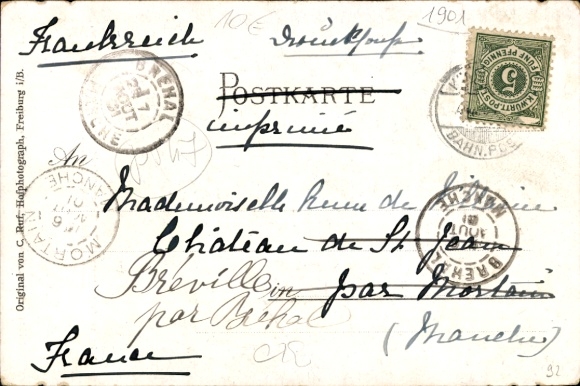 10€
1901
Frankreich Drucksache
POSTKARTE
imprimé
An
Mademoiselle
Château de St Jean
Bréville
par Mortain
par Bréhal
(Manche)
France
92
5
FÜNF PFENNIG
K.WÜRT.POST
BAHN.POST
BREHAL
MANCHE
7
AOUT
MORTAIN
MANCHE
6
BREHAL
MANCHE
AOUT
01
Original von C. Ruf, Hofphotograph, Freiburg i/B.